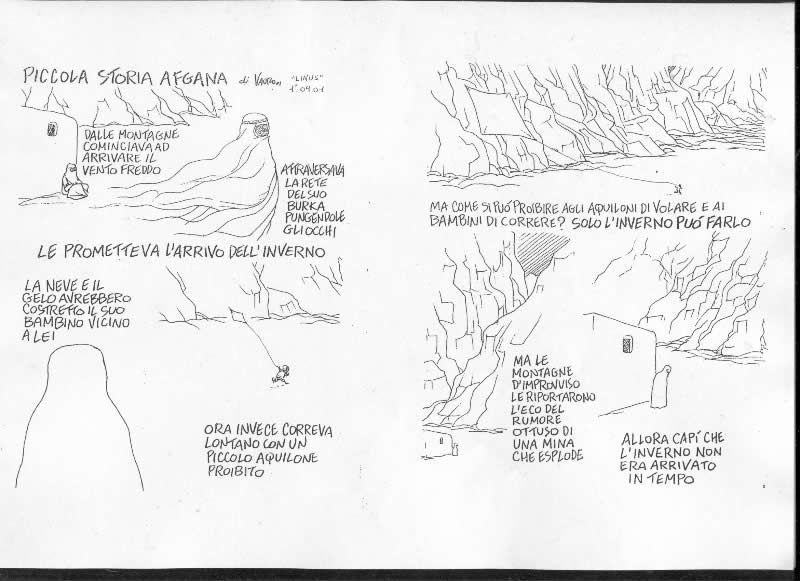 PICCOLA STORIA AFGANA di Vauro "LINUS"
1°.09.01
DALLE MONTAGNE
COMINCIAVA AD
ARRIVARE IL
VENTO FREDDO
ATTRAVERSAVA
LA RETE
DEL SUO
BURKA
PUNGENDOLE
GLI OCCHI
LE PROMETTEVA L'ARRIVO DELL'INVERNO
LA NEVE E IL
GELO AVREBBERO
COSTRETTO IL SUO
BAMBINO VICINO
A LEI
ORA INVECE CORREVA
LONTANO CON UN
PICCOLO AQUILONE
PROIBITO
MA COME SI PUÓ PROIBIRE AGLI AQUILONI DI VOLARE E AI
BAMBINI DI CORRERE? SOLO L'INVERNO PUÓ FARLO
MA LE
MONTAGNE
D'IMPROVVISO
LE RIPORTARONO
L'ECO DEL
RUMORE
OTTUSO DI
UNA MINA
CHE ESPLODE
ALLORA CAPÍ CHE
L'INVERNO NON
ERA ARRIVATO
IN TEMPO